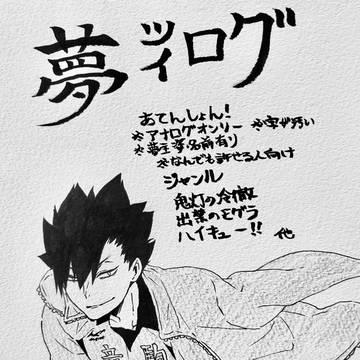 夢ツイログ
あてんしょん!
※アナログオンリー ※字が汚い
※夢主等名前有り
※なんでも許せる人向け
ジャンル
鬼灯の冷徹
出禁のモグラ
ハイキュー!! 他
音駒